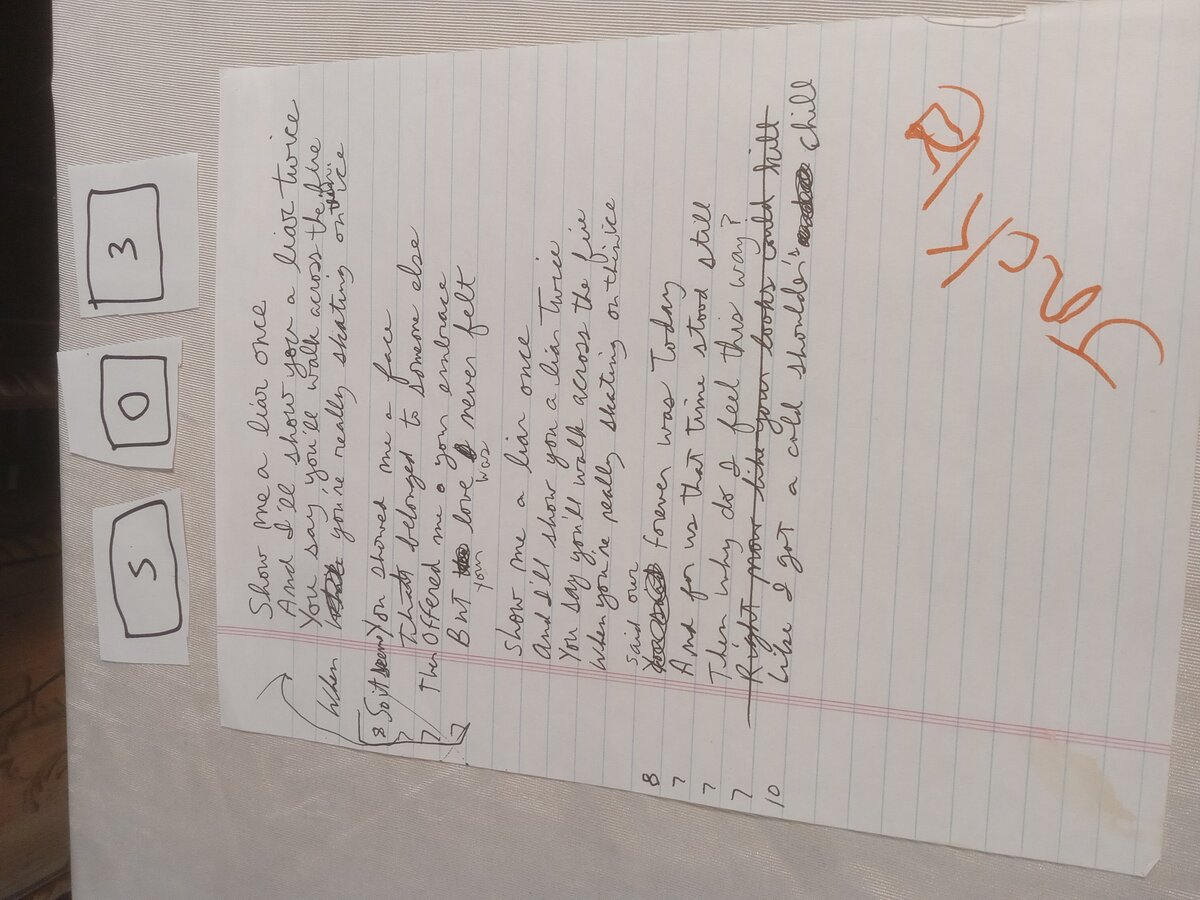 5 0 3
Show me a liar once
And I'll show you a liar twice
You say you'll walk across the fire
When you're really skating on thin ice
8 So it seems You showed me a face
7 That belonged to someone else
7 Then Offered me your embrace
7 But your love was never felt
Show me a liar once
And I'll show you a liar twice
You say you'll walk across the fire
When you're really skating on thin ice
8 You said our forever was Today
7 And for us that time stood still
7 Then why do I feel this way?
7 Right now like your looks could kill
10 Like I got a cold shoulder's chill